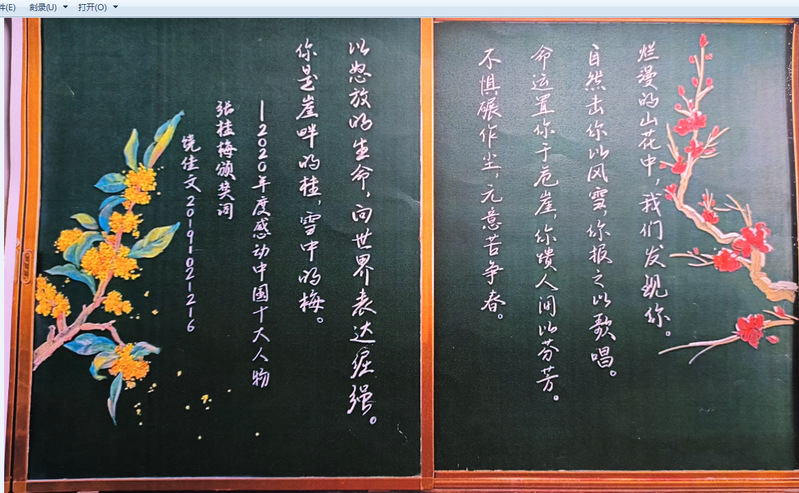 件(E) 刻录(U) 打开(O)
烂漫的山花中，我们发现你。
自然击你以风雪，你报之以歌唱。
命运置你于危崖，你馈人间以芬芳。
不惧碾作尘，无意苦争春。
以怒放的生命，向世界表达倔强。
你是崖畔的桂，雪中的梅。
—2020年度感动中国十大人物
张桂梅颁奖词
饶佳文 20191021216